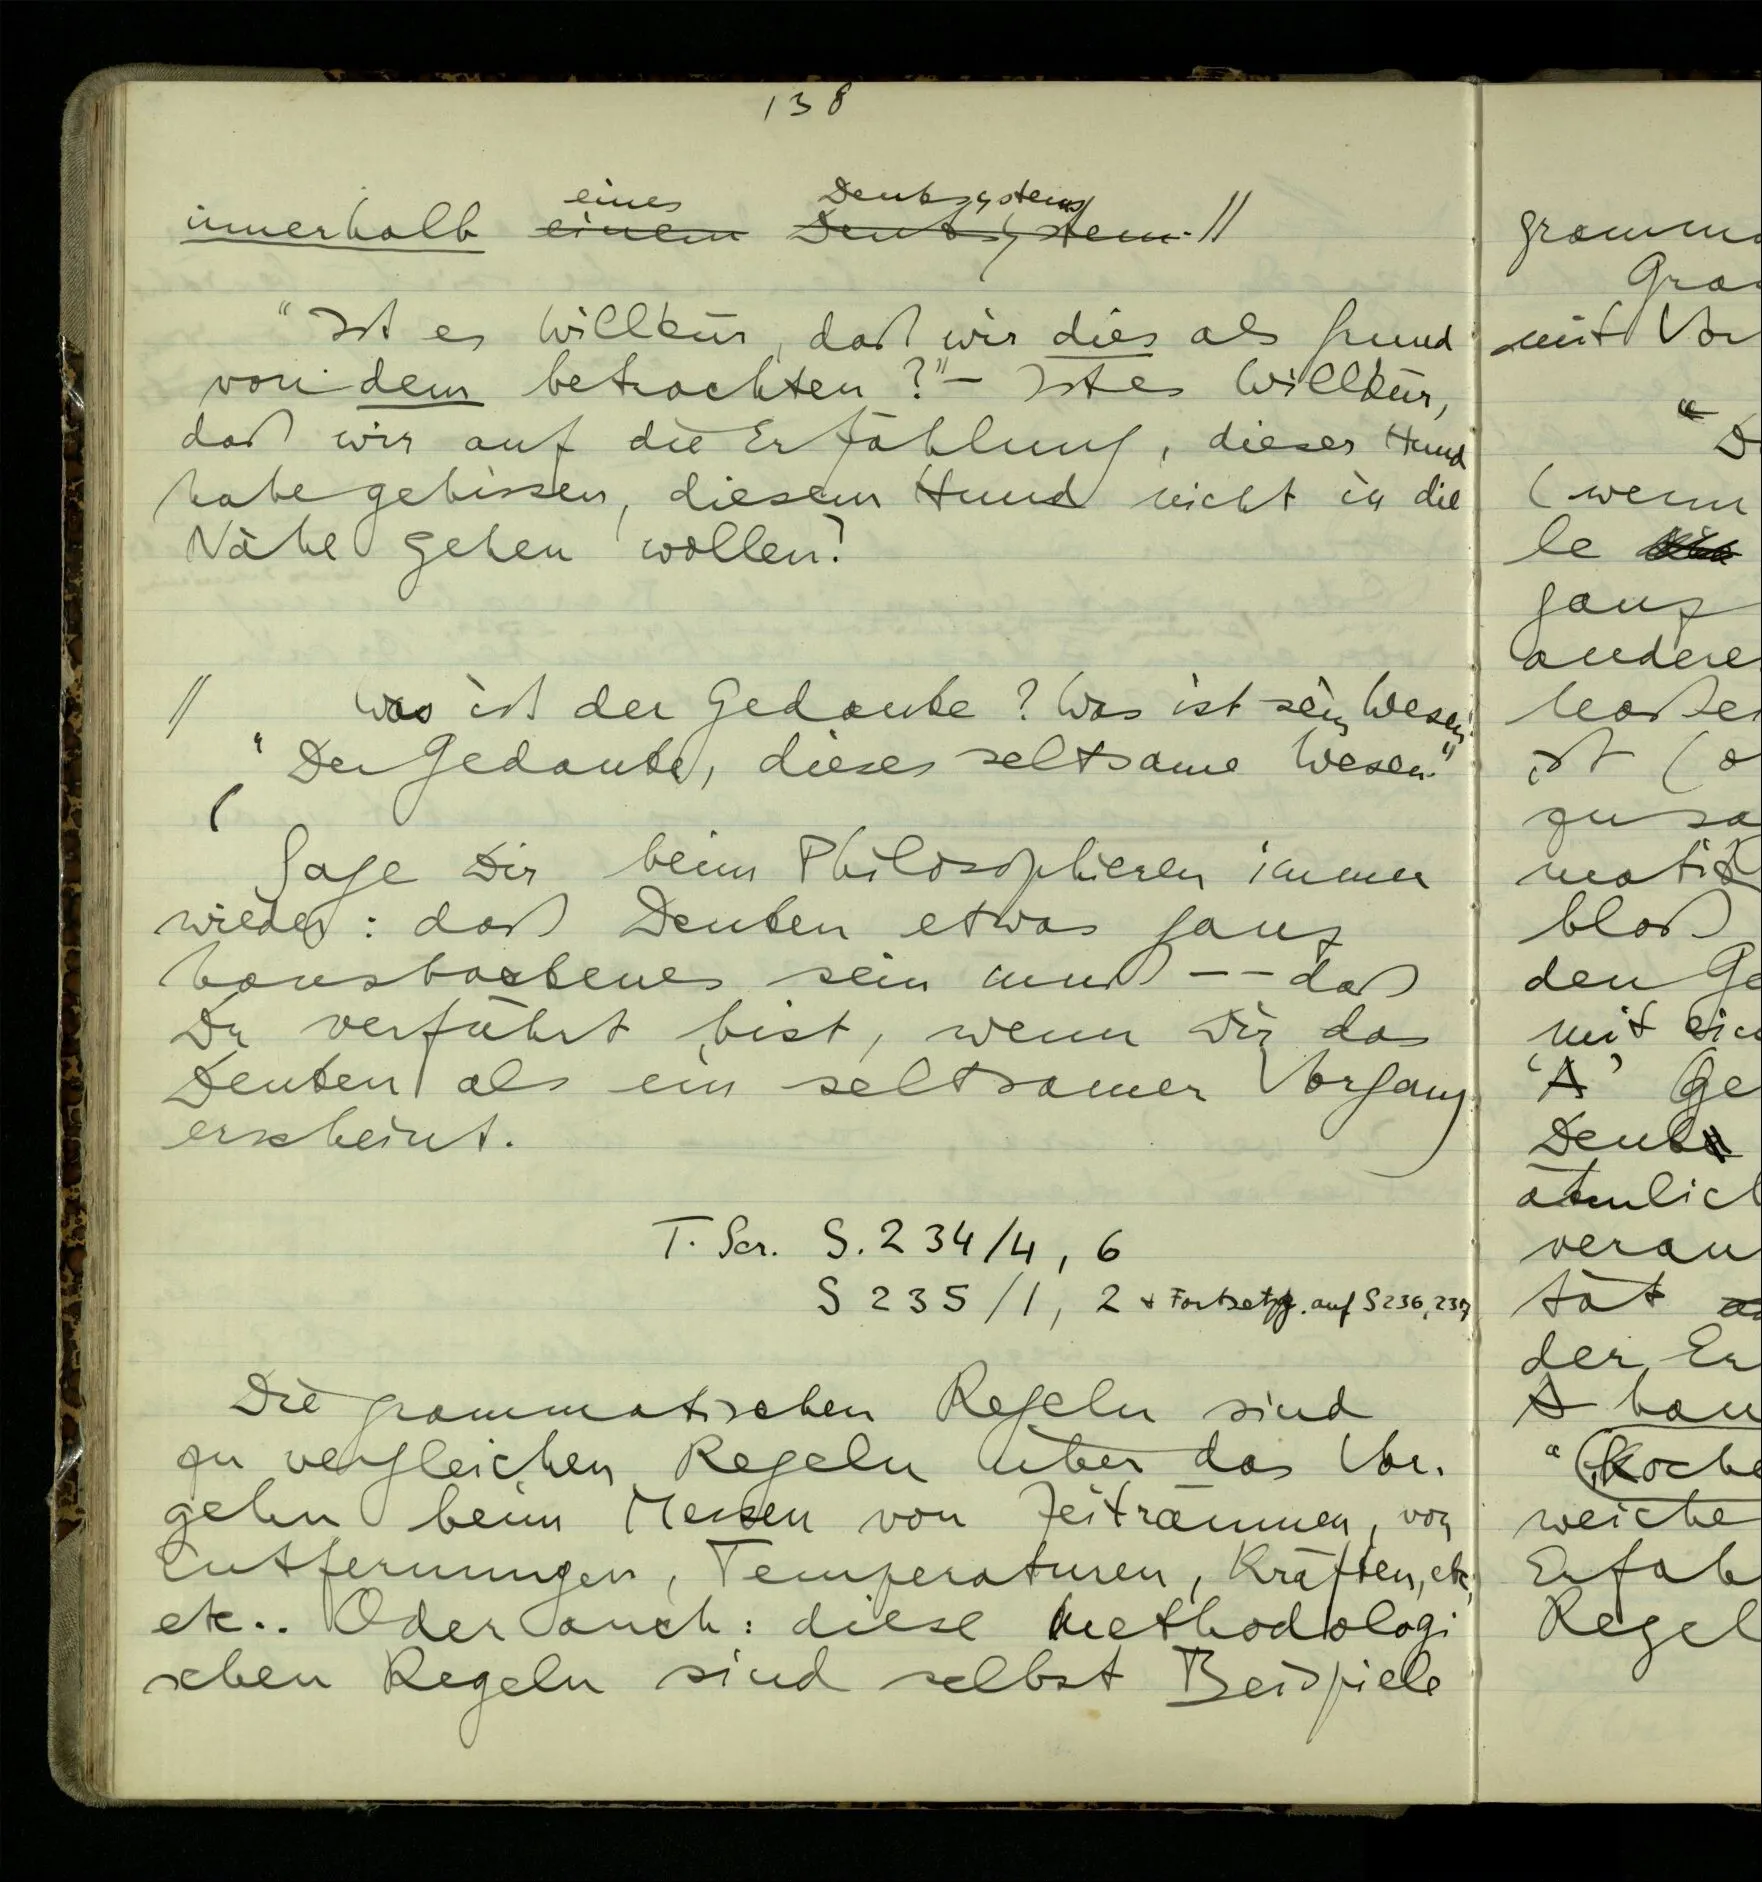 138
innerhalb eines Denksystems //
einem Denksystem.
"Ist es Willkür, daß wir dies als Grund
von dem betrachten?" – Ist es Willkür,
daß wir auf die Erzählung, dieser Hund
habe gebissen, diesem Hund nicht in die
Nähe gehen wollen?
// Was ist der Gedanke? Was ist sein Wesen?
"Der Gedanke, dieses seltsame Wesen."
(
Sage Dir beim Philosophieren immer
wieder: daß Denken etwas ganz
hausbackenes sein muß –– daß
Du verführt bist, wenn Dir das
Denken als ein seltsamer Vorgang
erscheint.
T. Scr. S. 234/4, 6
S 235/1, 2 + Fortsetzg. auf S 236, 237
Die grammatischen Regeln sind
zu vergleichen Regeln über das Vor-
gehn beim Messen von Zeiträumen, von
Entfernungen, Temperaturen, Kräften, etc,
etc.. Oder auch: diese methodologi
schen Regeln sind selbst Beispiele
gramma
Gra
mit Vor
"D
(wenn
le
ganz
andere
ist (o
zusa
matik
bloß
den Ge
mit ein
'A' Ge
Denk
ähnlich
veran
tät
der Er
A kau
"Koche
weiche
Erfah
Regel